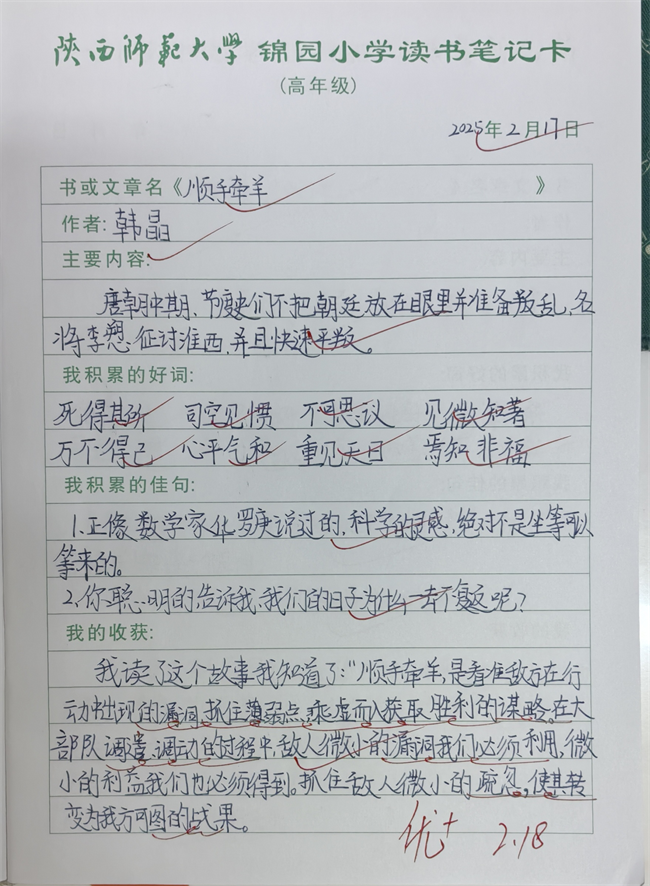 陕西师范大学 锦园小学读书笔记卡
(高年级)
2025年2月17日
书或文章名《顺手牵羊》
作者:韩晶
主要内容:
唐朝中期,节度史们不把朝廷放在眼里并准备叛乱,名
将李愬,征讨淮西,并且快速平叛。
我积累的好词:
死得其所 司空见惯 不可思议 见微知著
万不得已 心平气和 重见天日 焉知非福
我积累的佳句:
1.正像数学家华罗庚说过的,科学的灵感,绝对不是坐等可以
等来的。
2.你聪明的告诉我,我们的日子为什么一去不复返呢?
我的收获:
我读了这个故事我知道了:"顺手牵羊,是看准敌方在行
动中出现的漏洞,抓住薄弱点,乘虚而入获取胜利的谋略。在大
部队调遣、调动的过程中敌人微小的漏洞我们必须利用,微
小的利益我们也必须得到。抓住敌人微小的疏忽,使其转
变为我方可图的战果。
优+ 2.18